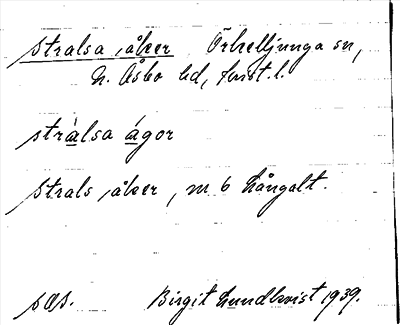 stralsa åker Örkelljunga sn,
N. Åsbo hd,
strålsa ågor
strals åker, m 6 Hångalt.
sas. Birgit Lundkvist 1939.